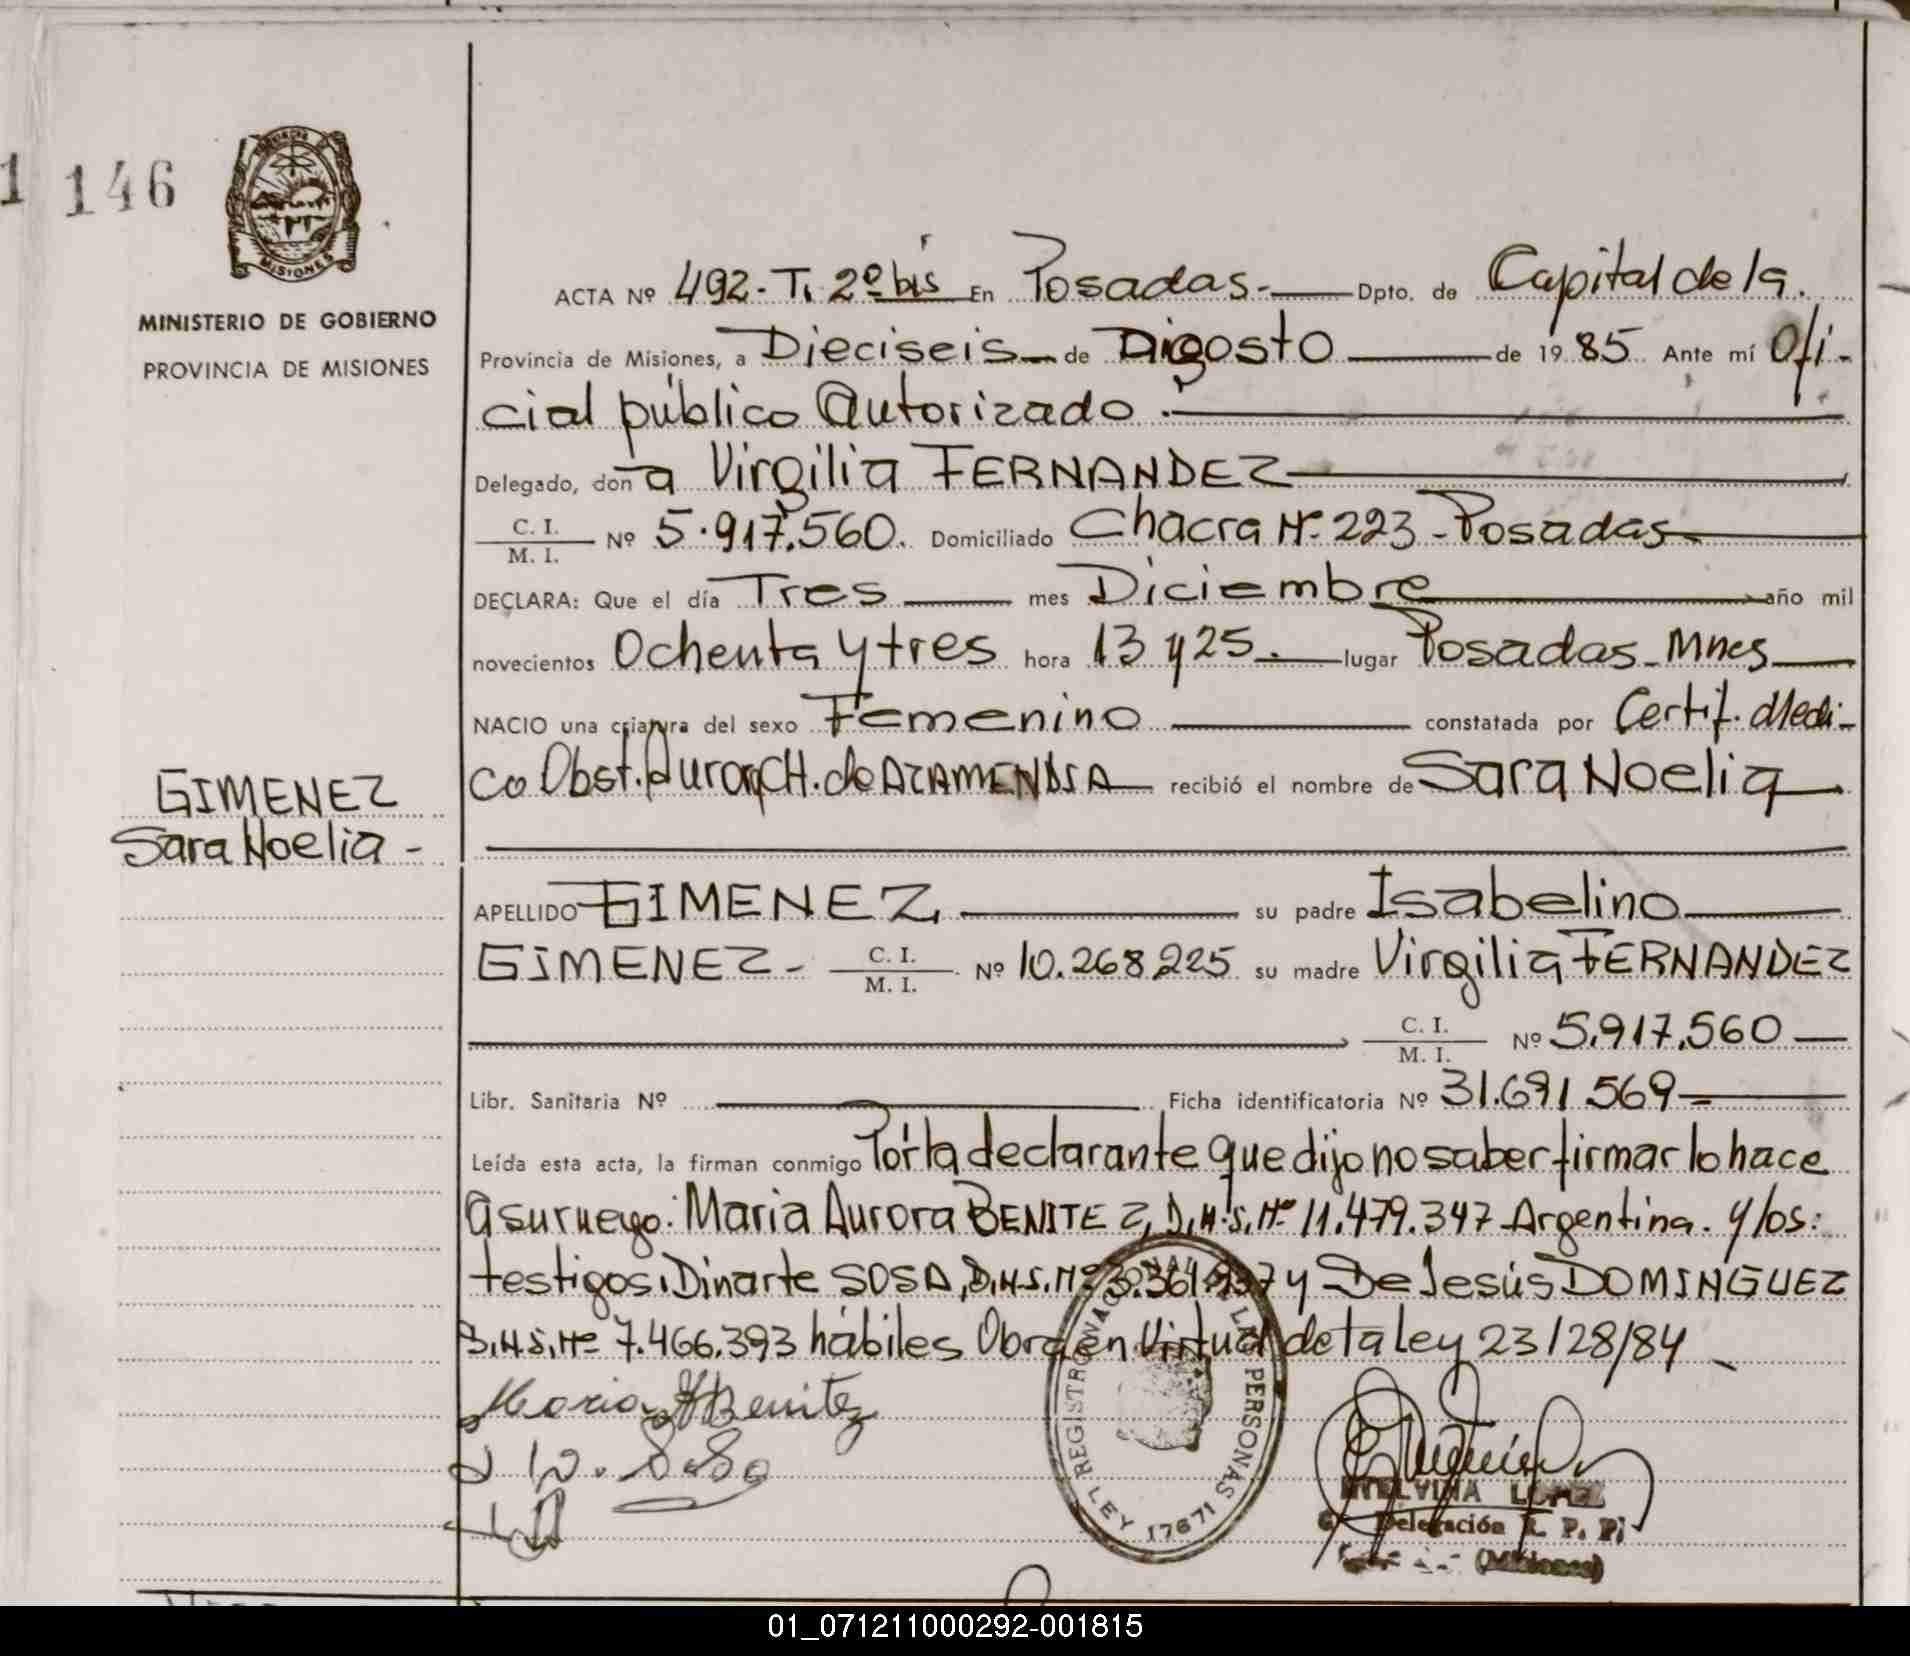 1 146
MISIONES
MINISTERIO DE GOBIERNO
PROVINCIA DE MISIONES
ACTA Nº 492 - T. 2º bis En Posadas. Dpto. de Capital de la.
Provincia de Misiones, a Dieciseis de Agosto de 19 85 Ante mí Ofi-
cial público Autorizado.
Delegado, don a Virgilia FERNANDEZ
C. I.
M. I.
Nº 5.917.560. Domiciliado Chacra Nº 223 - Posadas
DECLARA: Que el día Tres mes Diciembre año mil
novecientos Ochenta y tres hora 13 y 25. lugar Posadas - Mnes
NACIO una criatura del sexo Femenino constatada por Certif. Medi-
co Obst. Aurora CH. de recibió el nombre de Sara Noelia
GIMENEZ
Sara Noelia -
APELLIDO GIMENEZ, su padre Isabelino
GIMENEZ - C. I.
M. I.
Nº 10.268.225 su madre Virgilia FERNANDEZ
C. I.
M. I.
Nº 5.917.560
Libr. Sanitaria Nº Ficha identificatoria Nº 31.691.569
Leída esta acta, la firman conmigo Por la declarante que dijo no saber firmar lo hace
a su ruego: Maria Aurora BENITEZ, D.N.I. Nº 11.479.347 Argentina. y los:
testigos: Dinarte SOSA, D.N.I. Nº y De Jesús DOMINGUEZ
D.N.I. Nº 7.466.393 hábiles Obra en Virtud de la ley 23128/84
Maria A Benitez
REGISTRO NACIONAL DE LAS PERSONAS
LEY 17671
LOPEZ
Delegación R. P. P.
(Misiones)
01_071211000292-001815